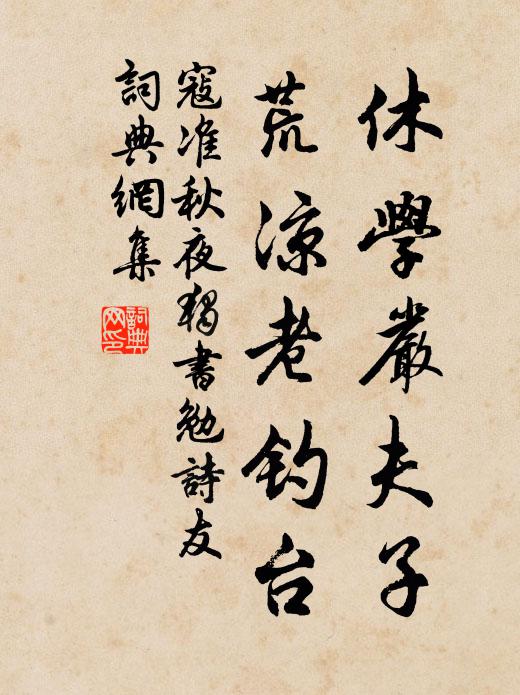 休學嚴夫子
荒涼老钓台
寇准秋夜獨書勉詩友
詞典網集
詞典
网印